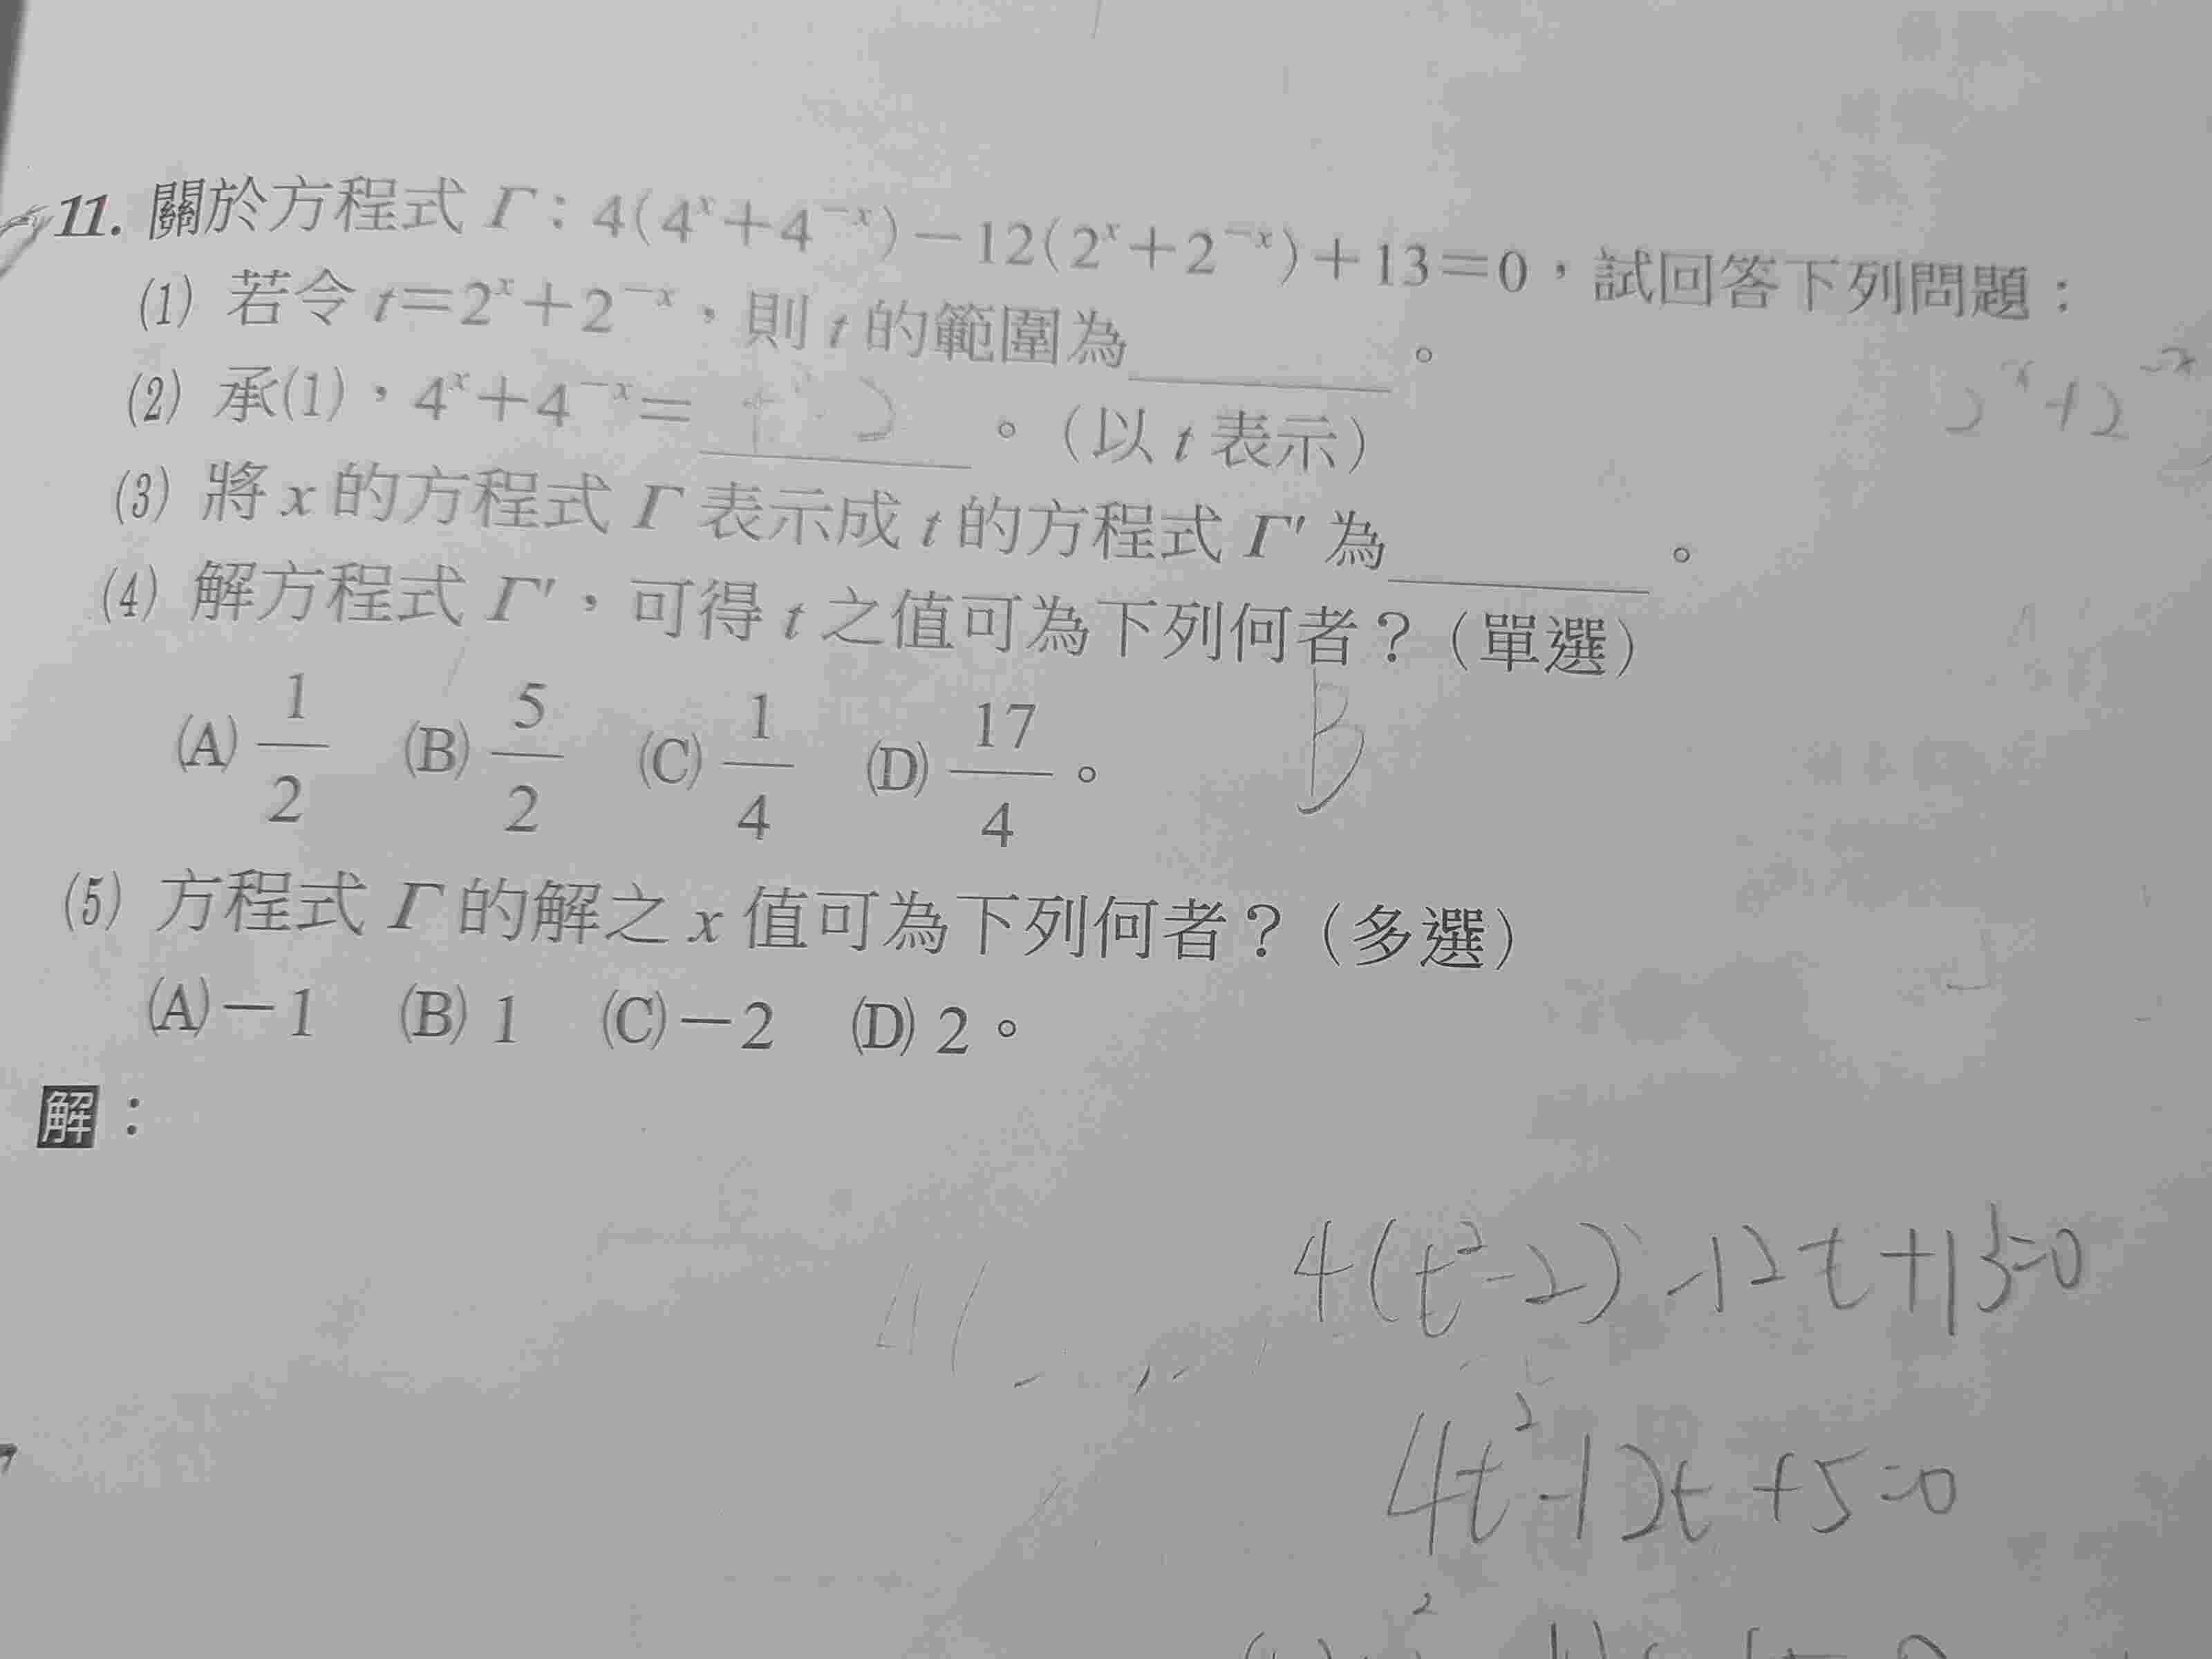 11. 關於方程式 Γ：4(4ˣ＋4⁻ˣ)－12(2ˣ＋2⁻ˣ)＋13＝0，試回答下列問題：
(1) 若令 t＝2ˣ＋2⁻ˣ，則 t 的範圍為＿＿＿＿。
2ˣ+2⁻ˣ
(2) 承(1)，4ˣ＋4⁻ˣ＝＿＿＿＿。（以 t 表示）
(3) 將 x 的方程式 Γ 表示成 t 的方程式 Γ′ 為＿＿＿＿。
(4) 解方程式 Γ′，可得 t 之值可為下列何者？（單選）
(A) 1/2 (B) 5/2 (C) 1/4 (D) 17/4。 B
(5) 方程式 Γ 的解之 x 值可為下列何者？（多選）
(A)－1 (B) 1 (C)－2 (D) 2。
解：
4(t²-2)-12t+13=0
4(
4t²-12t+5=0